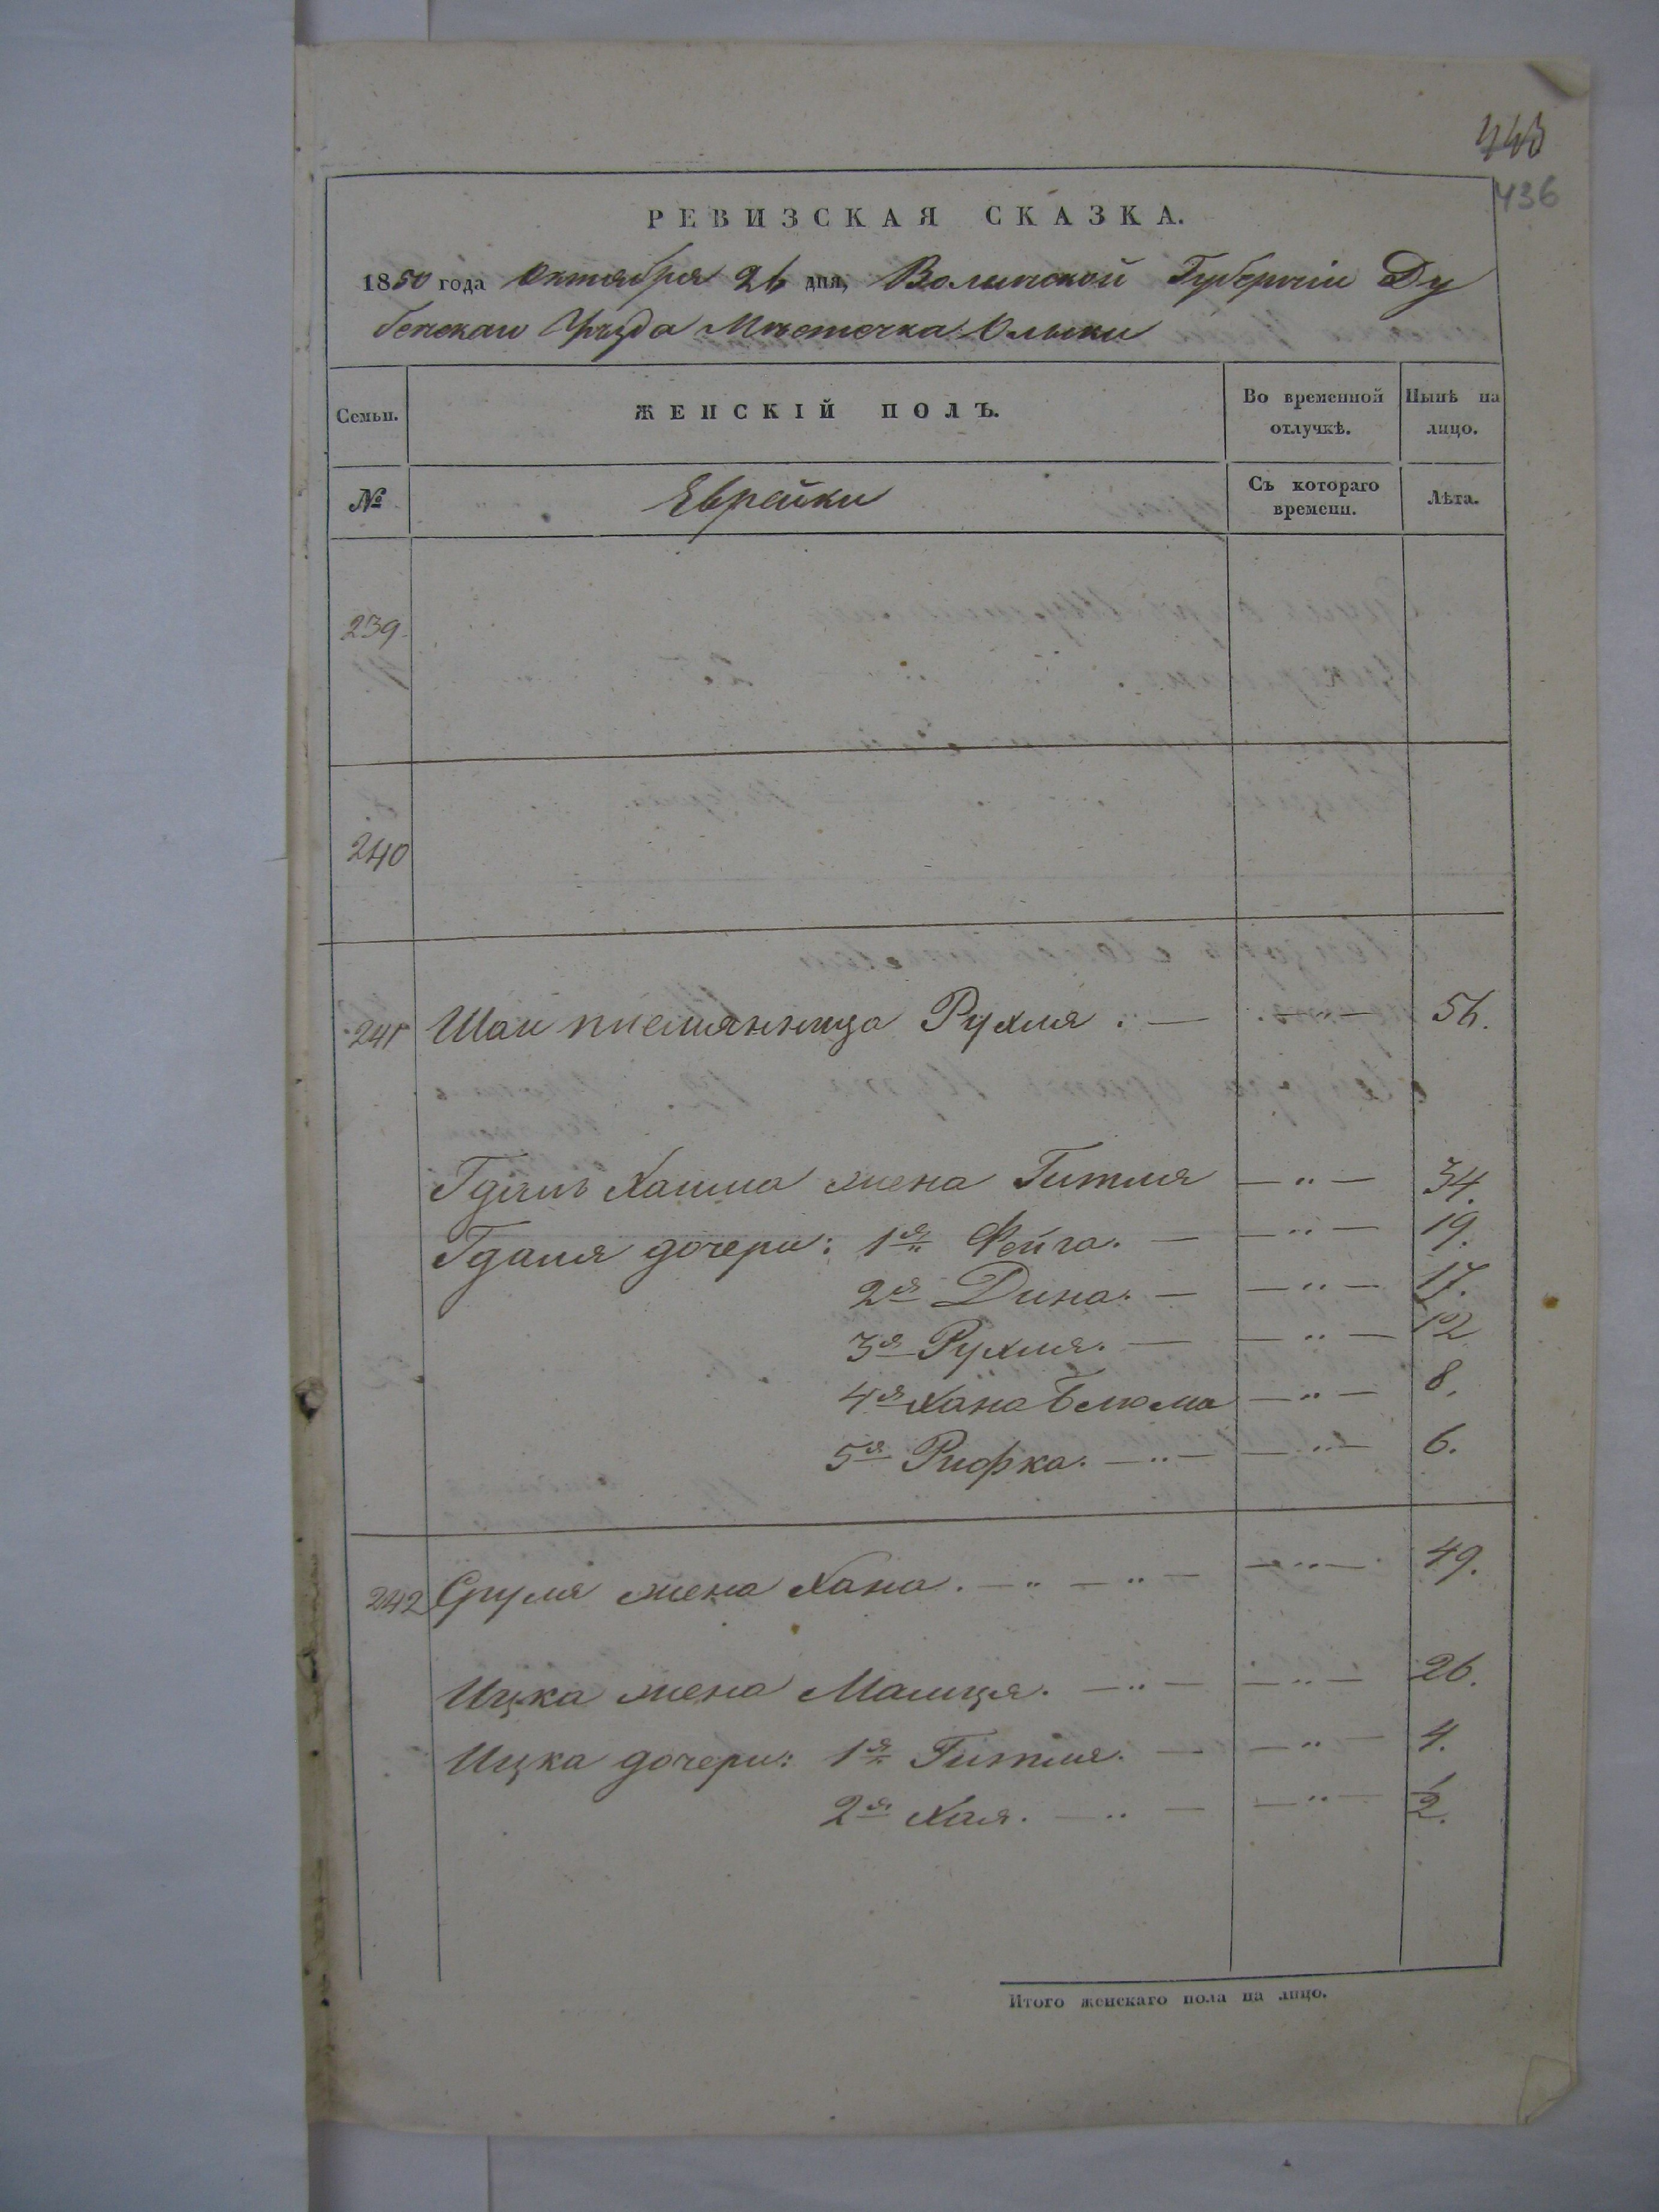 443
436
РЕВИЗСКАЯ СКАЗКА.
1850 года Октября 26 дня, Волынской Губерніи Ду
бенскаго Уѣзда Мѣстечка Олыки
Семьи. ЖЕНСКІЙ ПОЛЪ. Во временной отлучкѣ. Нынѣ на лицо.
№ Еврейки Съ котораго времени. Лѣта.
239.
240
241 Шаи племянница Рухля . — — " — 56.
Гдаль Хаима жена Гитля — " — 34.
Гдаля дочери: 1я Фейга. — — " — 19.
2я Дина. — — " — 17.
3я Рухля. — — " — 12
4я Хана Блюма — " — 8.
5я Рифка. — " — — " — 6.
242 Сруля жена Хана. — " — " — — " — 49.
Ицка жена Малця. — " — — " — 26.
Ицка дочери: 1я Гитля. — — " — 4.
2я Хая. — " — — " — 1/2.
Итого женскаго пола на лицо.